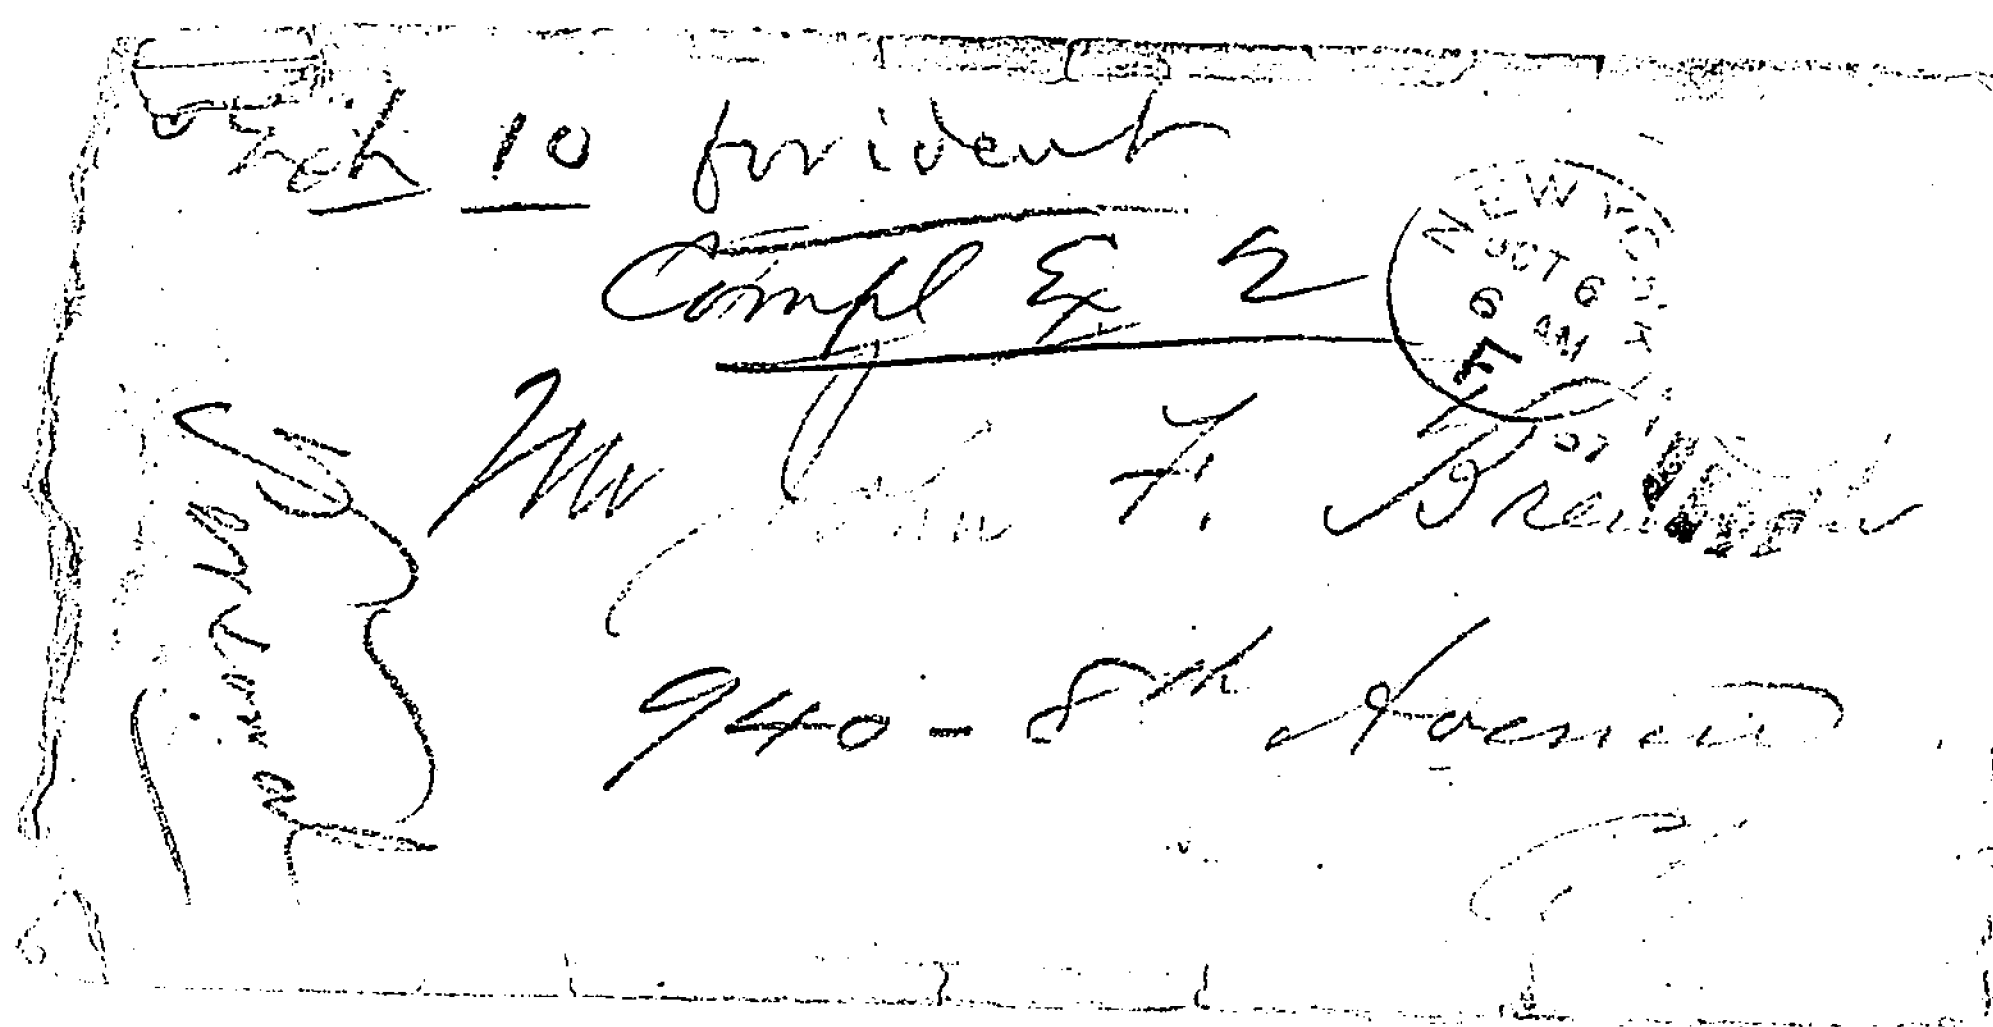 Exh 10 for ident
Compl Ex 2
NEW YORK
OCT 6
6 AM
F
07
Mr John F.
940 - 8th Avenue